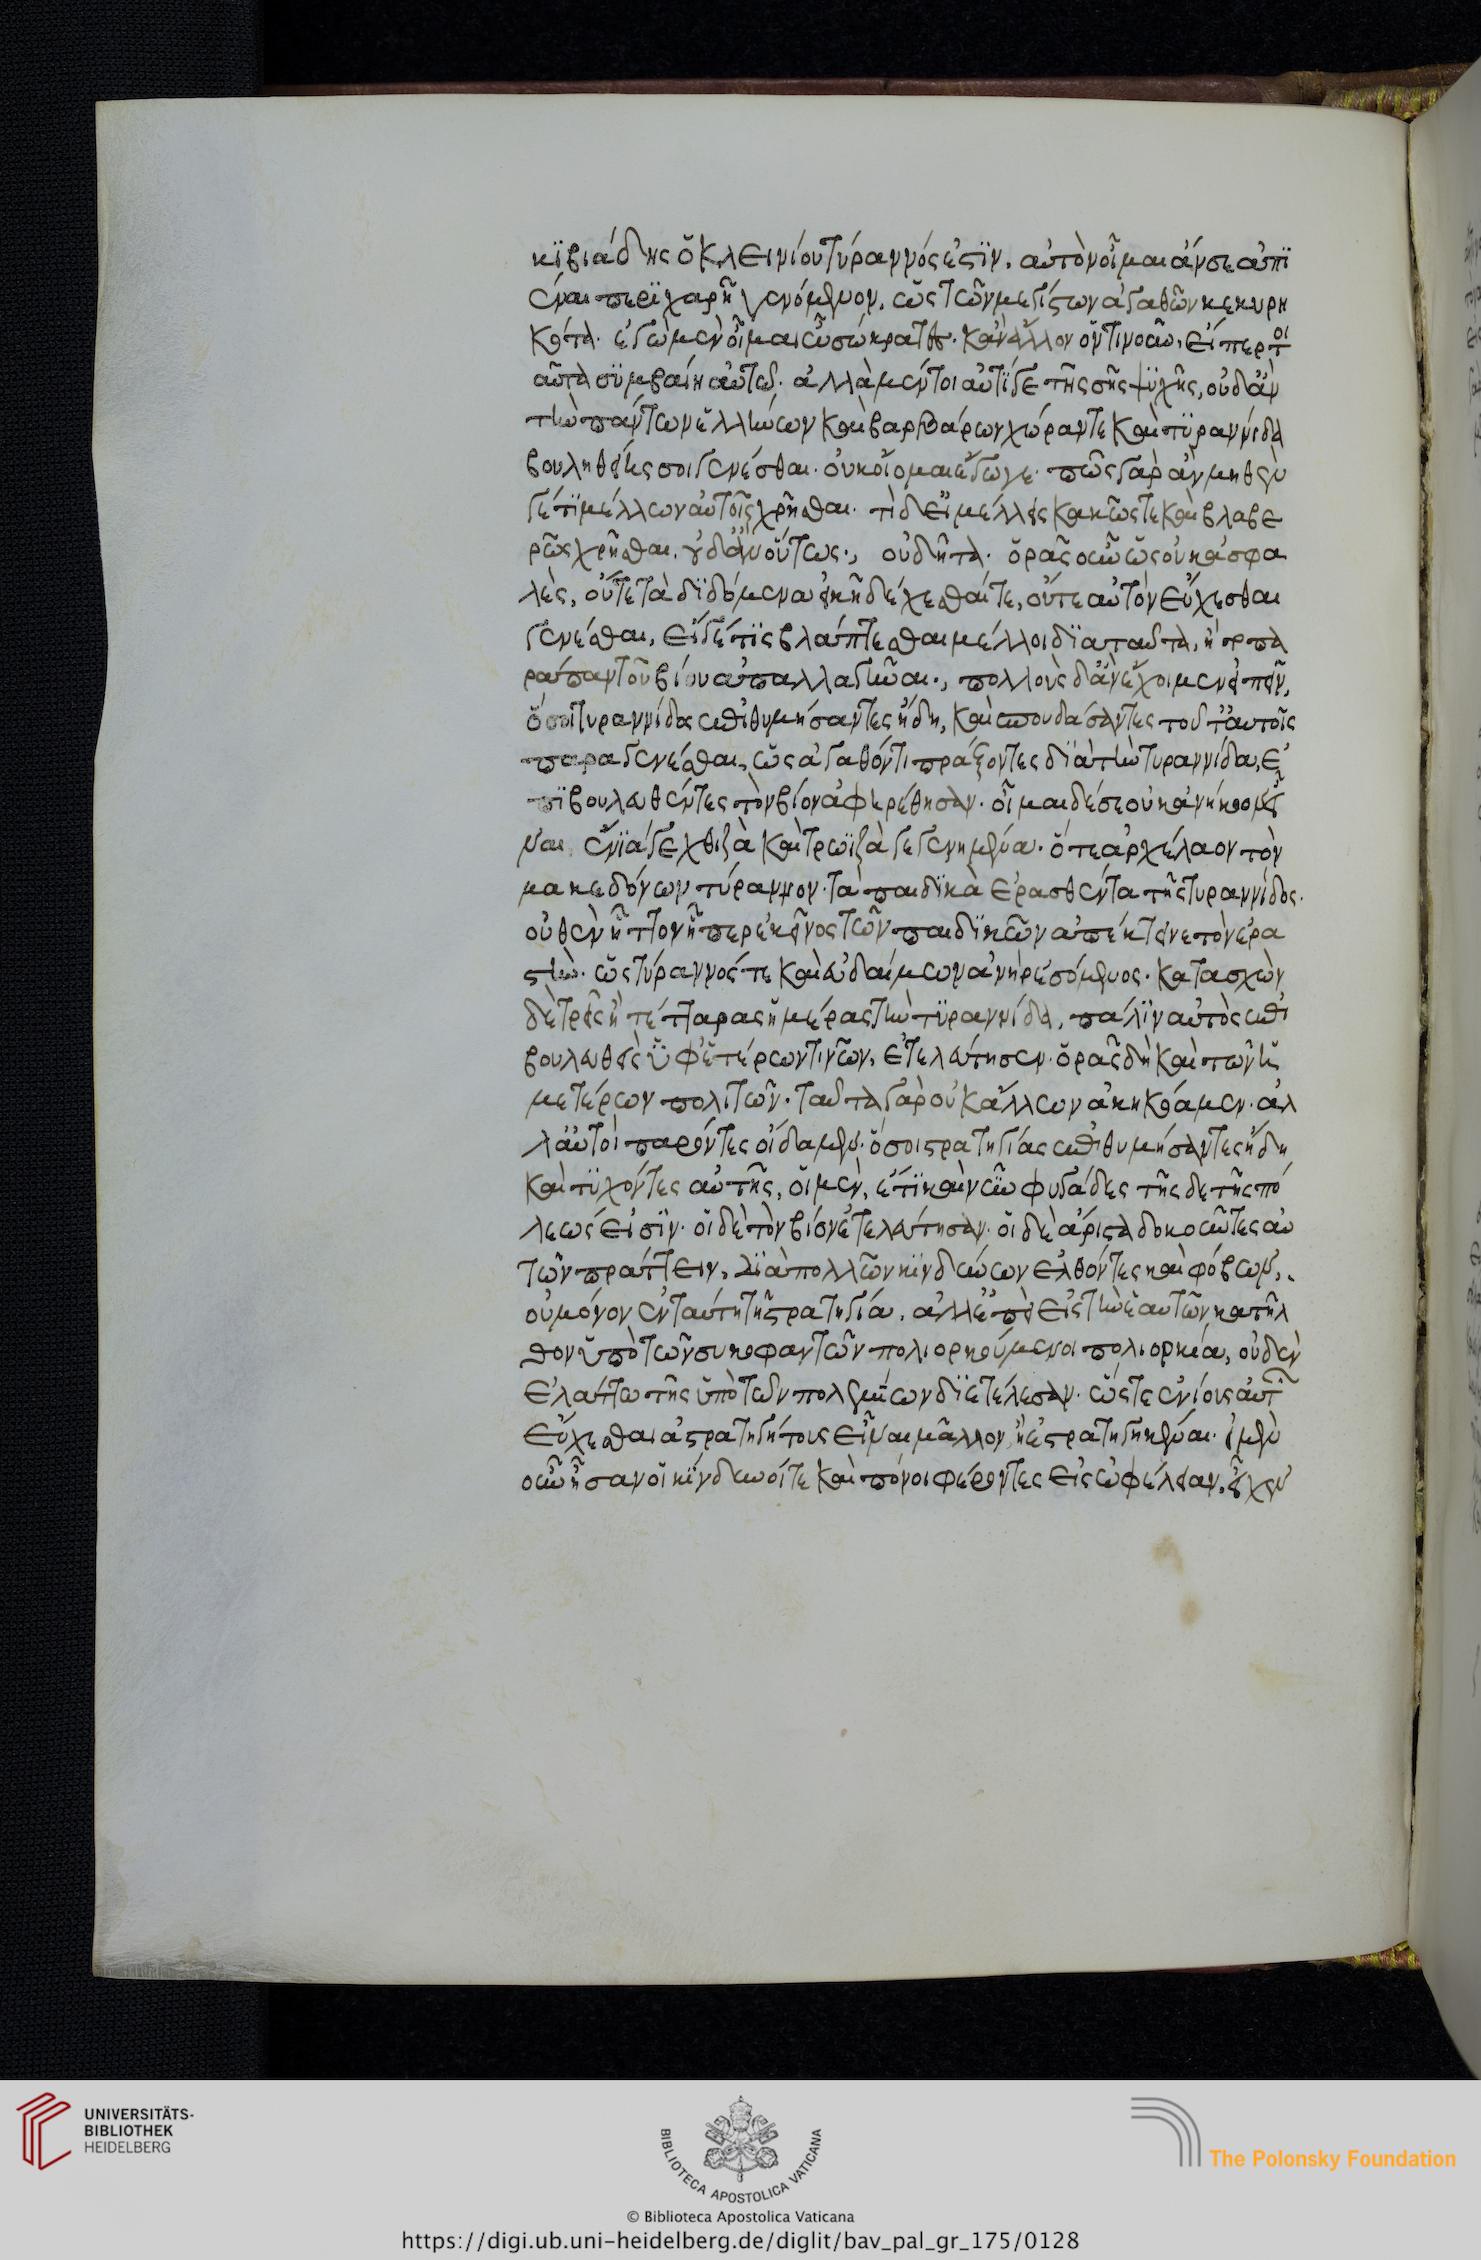 κϊβιάδης ὁ Κλεινίου τύραννός ἐστϊν. αὐτὸν οἶμαι ἄν σε ἀπϊ
έναι περϊχαρῆ γενόμενον, ὡς τῶν μεγίστων ἀγαθῶν κεκυρη
κότα. ἐγὼ μὲν οἶμαι ὦ σώκρατες. κἂν ἄλλον ὁντινοῦν, εἴπερ τοι
αῦτα σϋμβαίη αὐτῷ. ἀλλὰ μέντοι ἀντϊ γε τῆς σῆς ψϋχῆς, οὐδ' ἂν
τὴν πάντων ἑλλήνων καὶ βαρβάρων χώραν τε καὶ τϋραννίδα
βουληθείης σοι γενέσθαι. οὐκ οἴομαι ἔγωγε. πῶς γὰρ ἂν μηθέν
γέ τϊ μέλλων αὐτοῖς χρῆσθαι. τί δ' εἰ μέλλεις κακῶς τε καὶ βλαβε
ρῶς χρῆσθαι. οὐδ' ἂν οὕτως., οὐ δῆτα. ὁρᾷς οὖν ὡς οὐκ ἀσφα
λὲς, οὔτε τὰ δϊδόμενα εἰκῆ δέχεσθαί τε, οὔτε αὐτὸν εὔχεσθαι
γενέσθαι, εἴ γέ τϊς βλάπτεσθαι μέλλοι δϊα ταῦτα, ἢ τὸ πα
ράπαν τοῦ βίου ἀπαλλαγῆναι., πολλοὺς δ' ἂν ἔχοιμεν εἰπεῖν,
ὅσοι τυραννίδος ἐπιθυμήσαντες ἤδη, καὶ σπουδάσαντες τοῦτ' αὐτοῖς
παραγενέσθαι, ὡς ἀγαθόν τι πράξοντες δϊὰ τὴν τυραννίδα, ἐ
πϊβουλευθέντες τὸν βίον ἀφῃρέθησαν. οἶμαι δέ σε οὐκ ἀνήκοον εἶ
ναι ἔνϊά γε χθιζὰ καὶ τρωϊζὰ γεγενημένα. ὅτε ἀρχέλαον τὸν
μακεδόνων τύραννον. τὰ παιδϊκὰ ἐρασθέντα τῆς τυραννίδος.
οὐθὲν ἧττον ἤπερ ἐκεῖνος τῶν παιδϊκῶν ἀπέκτεινε τὸν ἐρα
στὴν. ὡς τύραννός τε καὶ εὐδαίμων ἀνὴρ ἐσόμενος. κατασχὼν
δὲ τρεῖς ἢ τέτταρας ἡμέρας τὴν τϋραννίδα, πάλϊν αὐτὸς ἐπι
βουλευθεὶς ὑφ' ἑτέρων τινῶν, ἐτελεύτησεν. ὁρᾷς δὴ καὶ τῶν ἡ
μετέρων πολιτῶν. ταῦτα γὰρ οὐκ ἄλλων ἀκηκόαμεν. ἀλ
λ' αὐτοὶ παρόντες οἴδαμεν. ὅσοι στρατηγίας ἐπιθυμήσαντες ἤδη
καὶ τϋχόντες αὐτῆς, οἱ μὲν, ἔτϊ καὶ νῦν φυγάδες τῆσδε τῆς πό
λεώς εἰσϊν. οἱ δὲ τὸν βίον ἐτελεύτησαν. οἱ δὲ ἄριστα δοκοῦντες αὐ
τῶν πράττειν, δϊὰ πολλῶν κϊνδύνων ἐλθόντες καὶ φόβων,.
οὐ μόνον ἐν ταύτῃ τῇ στρατηγίᾳ, ἀλλ' ἐπεὶ εἰς τὴν ἑαυτῶν κατῆλ
θον ὑπὸ τῶν συκοφαντῶν πολιορκούμενοι πολιορκίαν, οὐδὲν
ἐλάττω τῆς ὑπὸ τῶν πολεμίων δϊετέλεσαν. ὥστε ἐνίους αὐτῶν
εὔχεσθαι ἀστρατηγήτους εἶναι μᾶλλον, ἢ ἐστρατηγηκέναι. εἰ μὲν
οὖν ἦσαν οἱ κϊνδυνοί τε καὶ πόνοι φέροντες εἰς ὠφέλειαν, εἶχεν
UNIVERSITÄTS-
BIBLIOTHEK
HEIDELBERG
BIBLIOTECA APOSTOLICA VATICANA
The Polonsky Foundation
© Biblioteca Apostolica Vaticana
https://digi.ub.uni-heidelberg.de/diglit/bav_pal_gr_175/0128